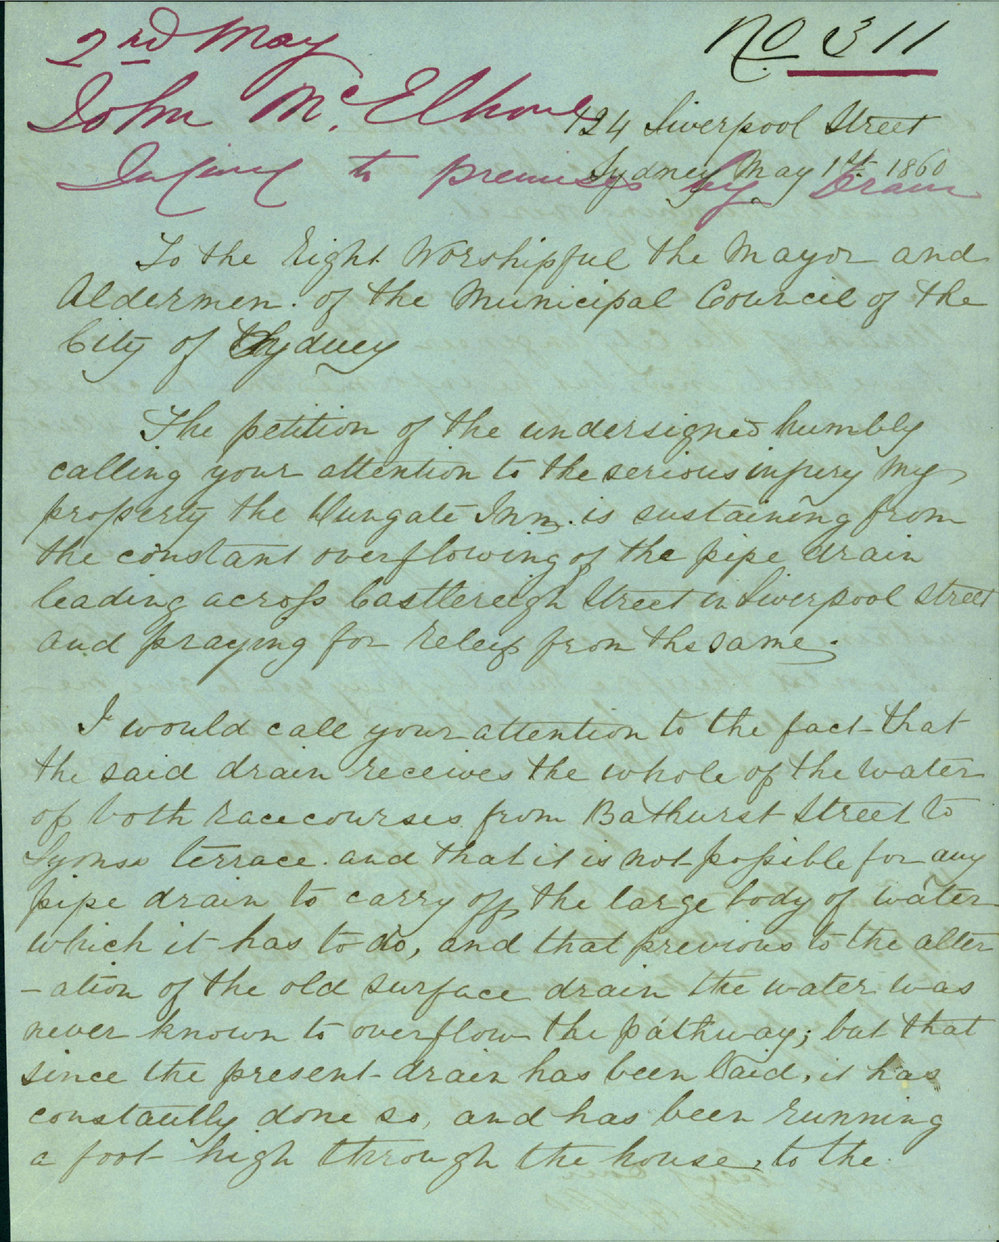 2nd May
No 311
John McElhone
124 Liverpool Street
Sydney May 1st. 1860
Injury to premises by Drain
To the Right Worshipful the Mayor and
Aldermen. of the Municipal Council of the
City of Sydney
The petition of the undersigned humbly
calling your attention to the serious injury My
property the Dungate Inn. is sustaining from
the constant overflowing of the pipe drain
leading across Castlereigh Street in Liverpool Street
and praying for releif from the same.
I would call your attention to the fact that
the said drain receives the whole of the water
of both racecourses from Bathurst Street to
Lyonss terrace. and that it is not possible for any
pipe drain to carry off the large body of water
which it has to do, and that previous to the alter
-ation of the old surface drain the water was
never known to overflow the pathway; but that
since the present drain has been laid, it has
constantly done so, and has been running
a foot high through the house, to the